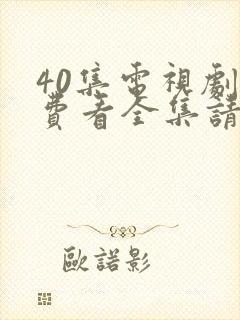 40集電視劇
費看全集請
歐諾影